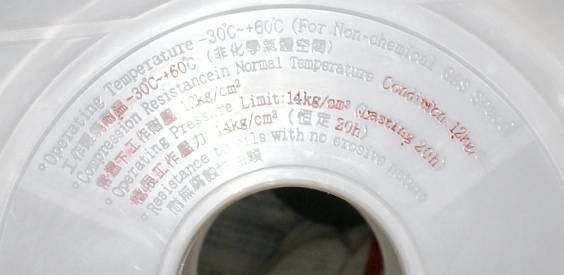 °Operating Temperature -30℃~+60℃ (For Non-chemical Gas Space)
工作 -30℃~+60℃ (非化學氣體空間)
°Compression Resistancein Normal Temperature Condition 12kg
常溫下工作 12kg/cm²
°Operating Pressure Limit:14kg/cm² (Lasting 20h)
使用工作壓力 14kg/cm² (恒定 20h)
°Resistance to oils with no erosive nature
耐無腐蝕 油類